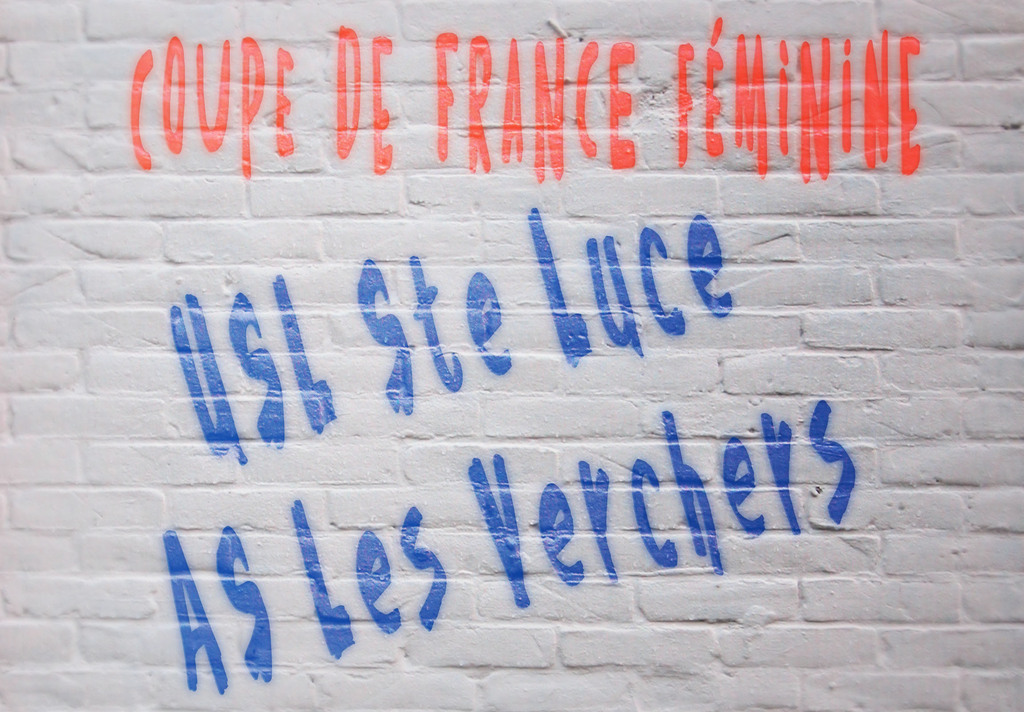 COUPE DE FRANCE FÉMININE
USL Ste Luce
AS Les Verchers